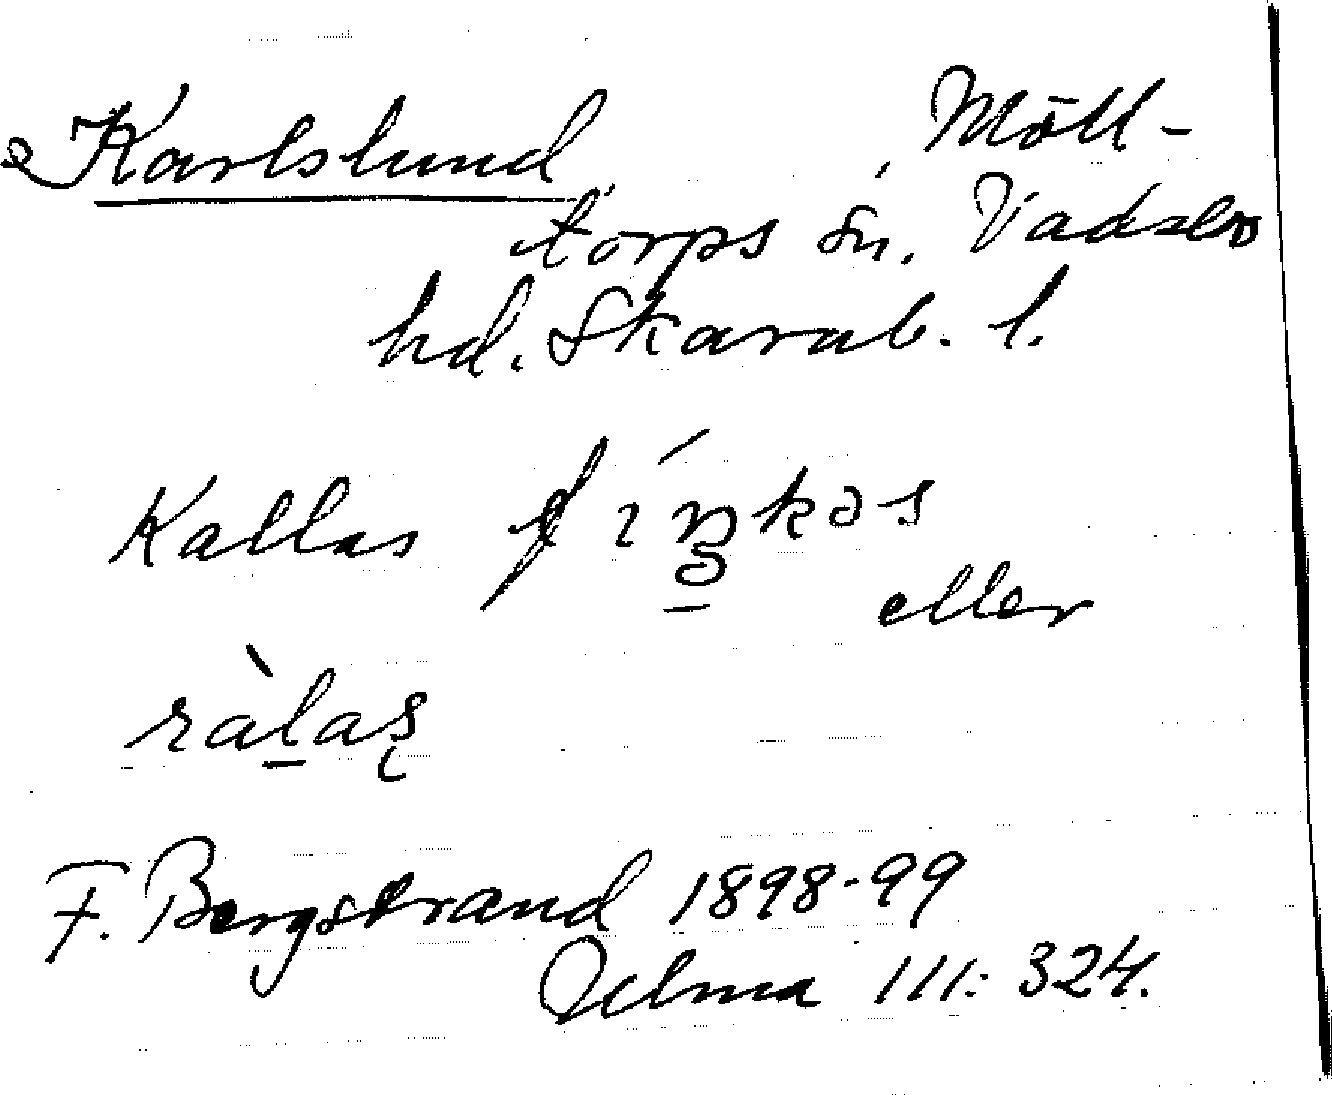 Karlslund, Möll-
torps sn. Vadsbo
hd. Skarab. l.
Kallas fíŋkəs
eller
ràlas
F. Bergstrand 1898-99
Ulma 111: 324.